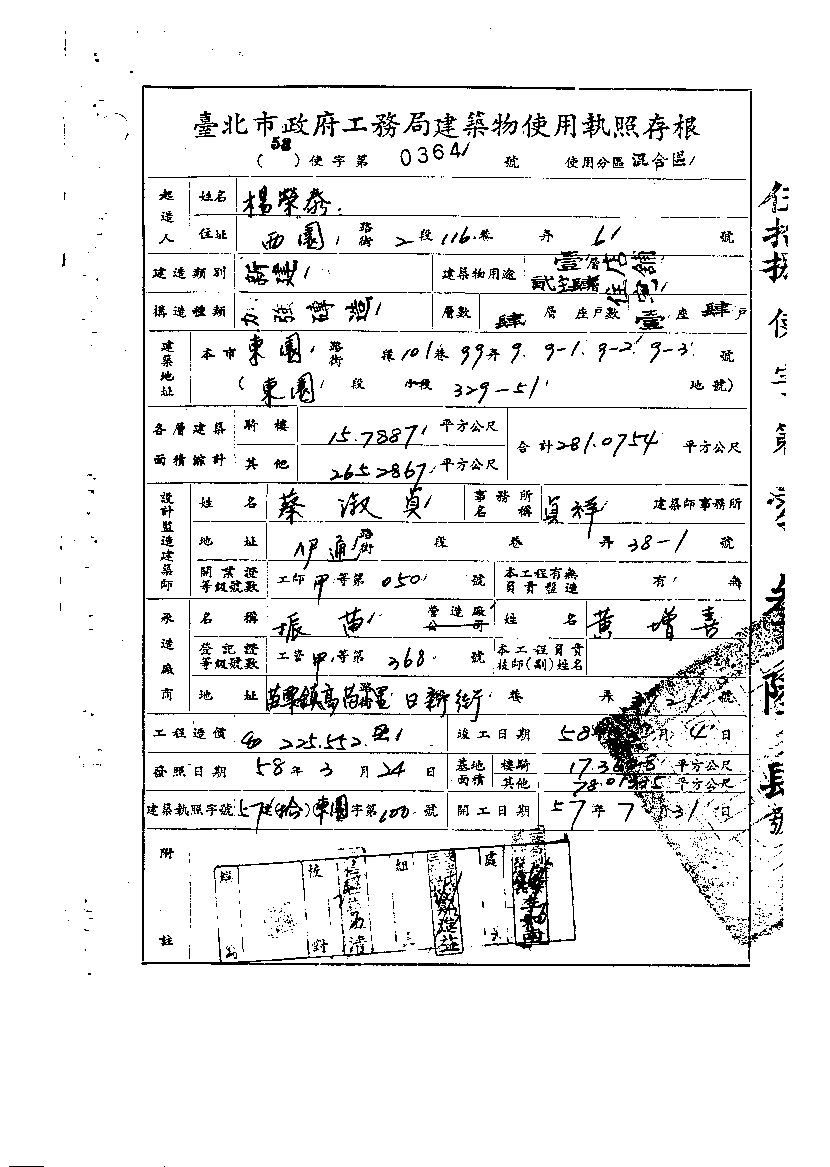 臺北市政府工務局建築物使用執照存根
(58)使字第 0364 號 使用分區 混合區
起造人 姓名 楊榮泰
住址 西園 路街 2 段 116 巷 弄 6 號
建造類別 新建 建築物用途 壹層店舖 貳至肆層住宅
構造種類 加強磚造 層數 肆 層 座戶數 壹 座 肆 戶
建築地址 本市 東園 路街 段 101 巷 99 弄 9. 9-1. 9-2. 9-3 號
(東園 段 小段 329-51 地號)
各層建築面積總計 騎樓 15.7887 平方公尺 合計 281.0754 平方公尺
其他 265.2867 平方公尺
設計監造建築師 姓名 蔡淑貞 事務所名稱 貞祥 建築師事務所
地址 伊通 路街 段 巷 弄 38-1 號
開業證等級號數 工師 甲 等第 050 號 本工程有無負責監造 有 無
承造廠商 名稱 振苗 營造廠公司 姓名 黃增喜
登記證等級號數 工營 甲 等第 368 號 本工程負責技師(副)姓名
地址 日新街 巷 弄 號
工程造價 225.552 竣工日期 58 月 4 日
發照日期 58 年 3 月 24 日 基地面積 樓騎 平方公尺
其他 平方公尺
建築執照字號 57建(拾)(東園)字第 100 號 開工日期 57 年 7 月 31 日
附註
核對 組 處